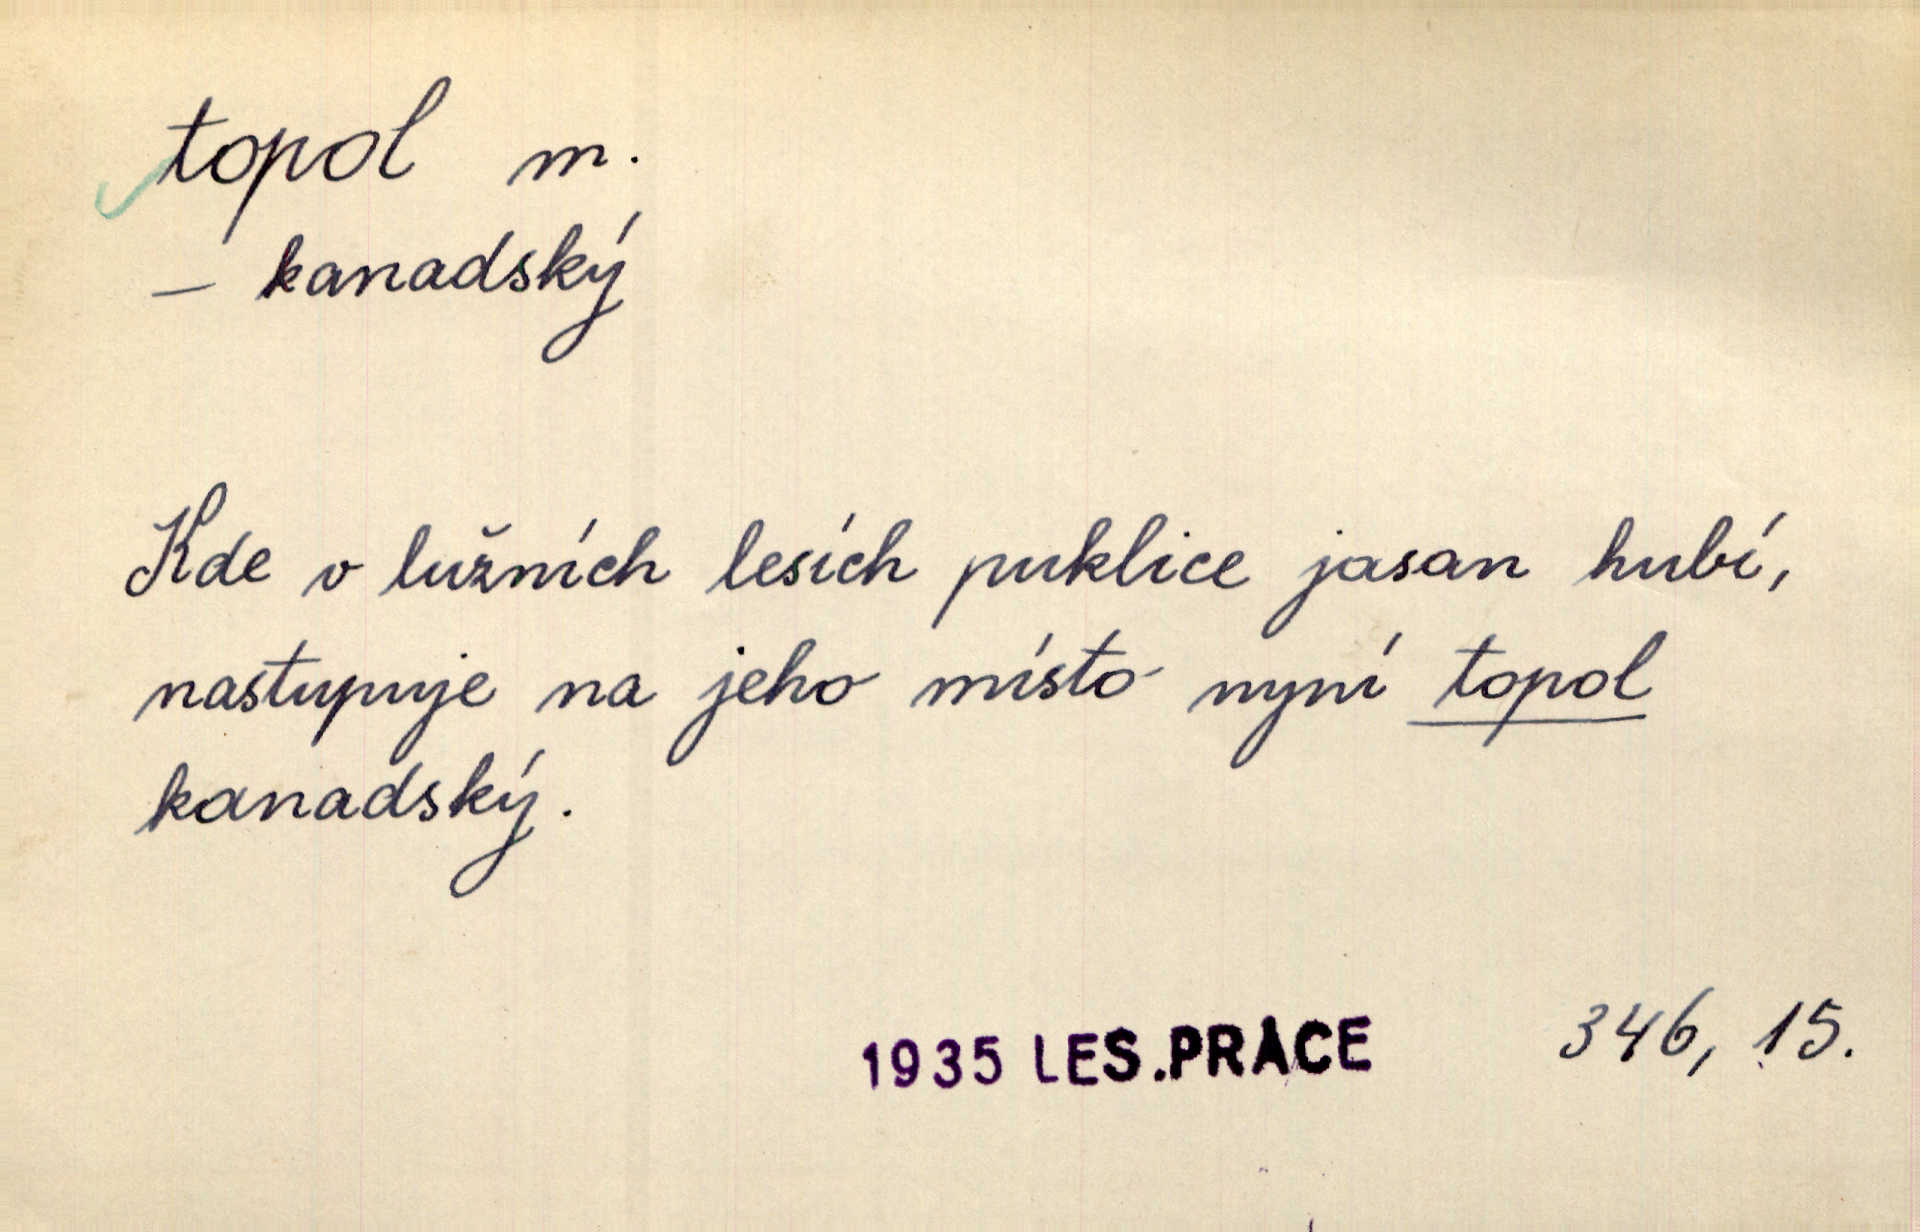 topol m.
– kanadský
Kde v lužních lesích puklice jasan hubí,
nastupuje na jeho místo nyní topol
kanadský.
1935 LES.PRÁCE 346, 15.